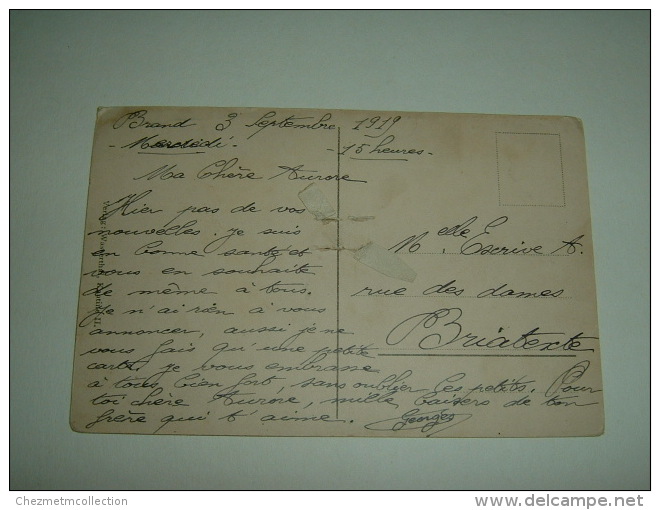 Brand 3 Septembre 1919
- Mercredi - - 15 heures -
Ma Chère Aurore
Hier pas de vos
nouvelles. Je suis
en bonne santé et
vous en souhaite
de même à tous.
Je n'ai rien à vous
annoncer, aussi je ne
vous fais qu'une petite
carte. Je vous embrasse
à tous bien fort, sans oublier les petits. Pour
toi chère Aurore, mille baisers de ton
frère qui t'aime. Georges
Melle Escrive A.
rue des dames
Briatexte
Chezmetmcollection
delcampe.net